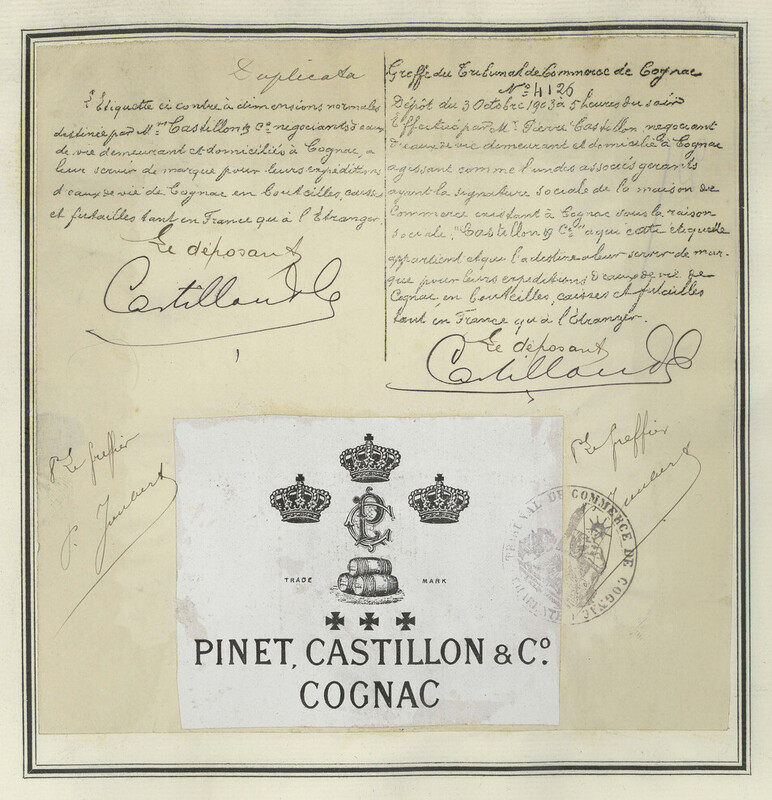 Duplicata
L'Etiquette ci contre à dimensions normales
destinée par Mrs Castillon & Co negociants d'eaux
de vie demeurant et domiciliés à Cognac, a
leur servir de marque pour leurs expéditions
d'eaux de vie de Cognac en bouteilles, caisses
et futailles tant en France qu'à l'Etranger
Le déposant
Castillon & Co
Greffe du Tribunal de Commerce de Cognac
No 4126
Dépôt du 3 Octobre 1903 à 5 heures du soir
Effectué par Mr Pierre Castillon, negociant
d'eaux de vie demeurant et domicilié à Cognac
agissant comme l'un des associés gérants
ayant la signature sociale de la maison de
Commerce existant à Cognac sous la raison
sociale "Castillon & Co" a qui cette étiquette
appartient et qui l'a destinée a leur servir de mar-
que pour leurs expéditions d'eaux de vie de
Cognac en bouteilles, caisses et futailles
tant en France qu'à l'Etranger.
Le déposant
Castillon & Co
Pr Le Greffier
Pr Le Greffier
TRIBUNAL DE COMMERCE DE COGNAC
CPC
TRADE MARK
PINET, CASTILLON & Co.
COGNAC